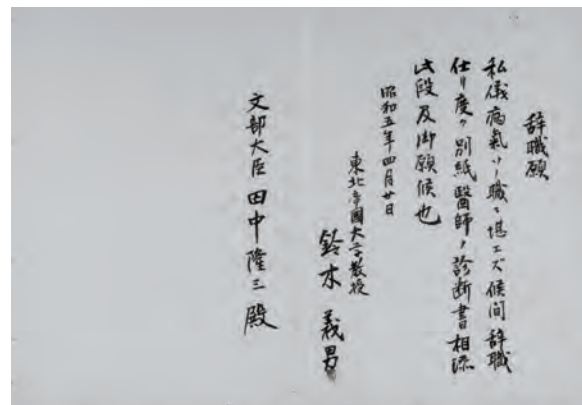 辞職願
私儀病氣ノ職ニ堪エズ候間辞職
仕リ度ク別紙醫師ノ診断書相添
此段及御願候也
昭和五年四月廿日
東北帝國大学教授
鈴木義男
文部大臣田中隆三殿